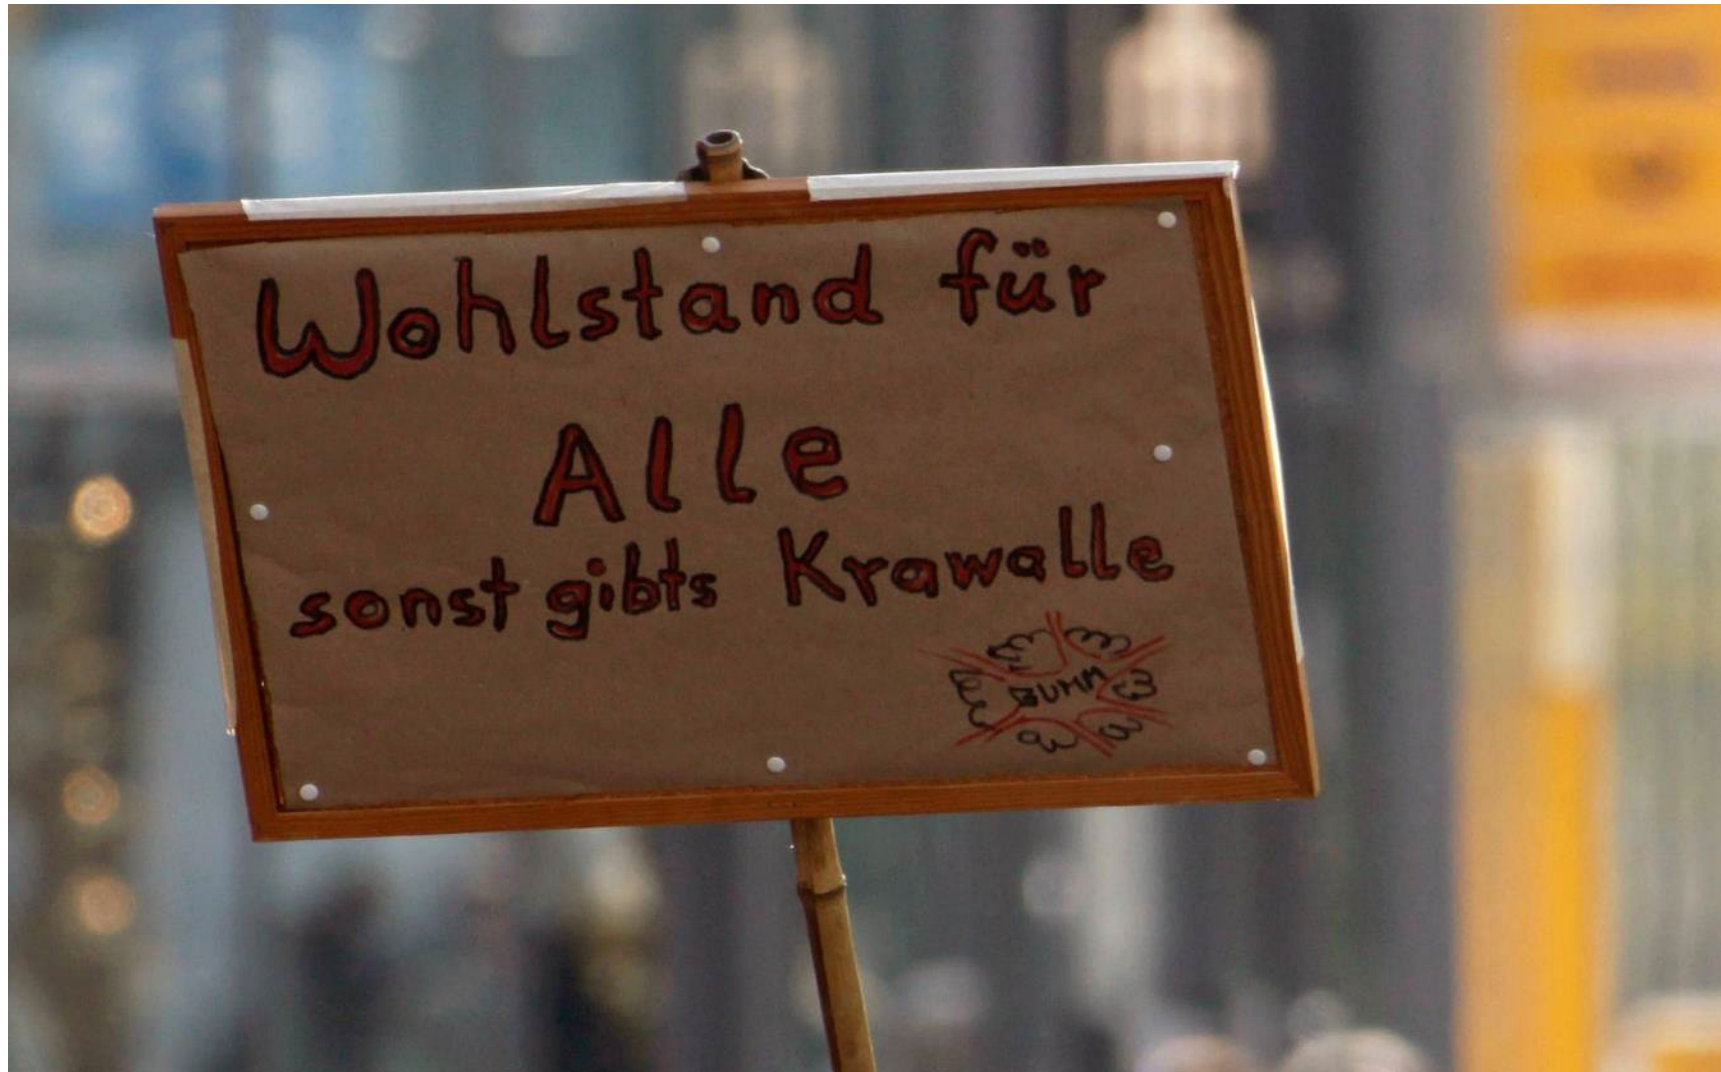 Wohlstand für
Alle
sonst gibts Krawalle
BUMM